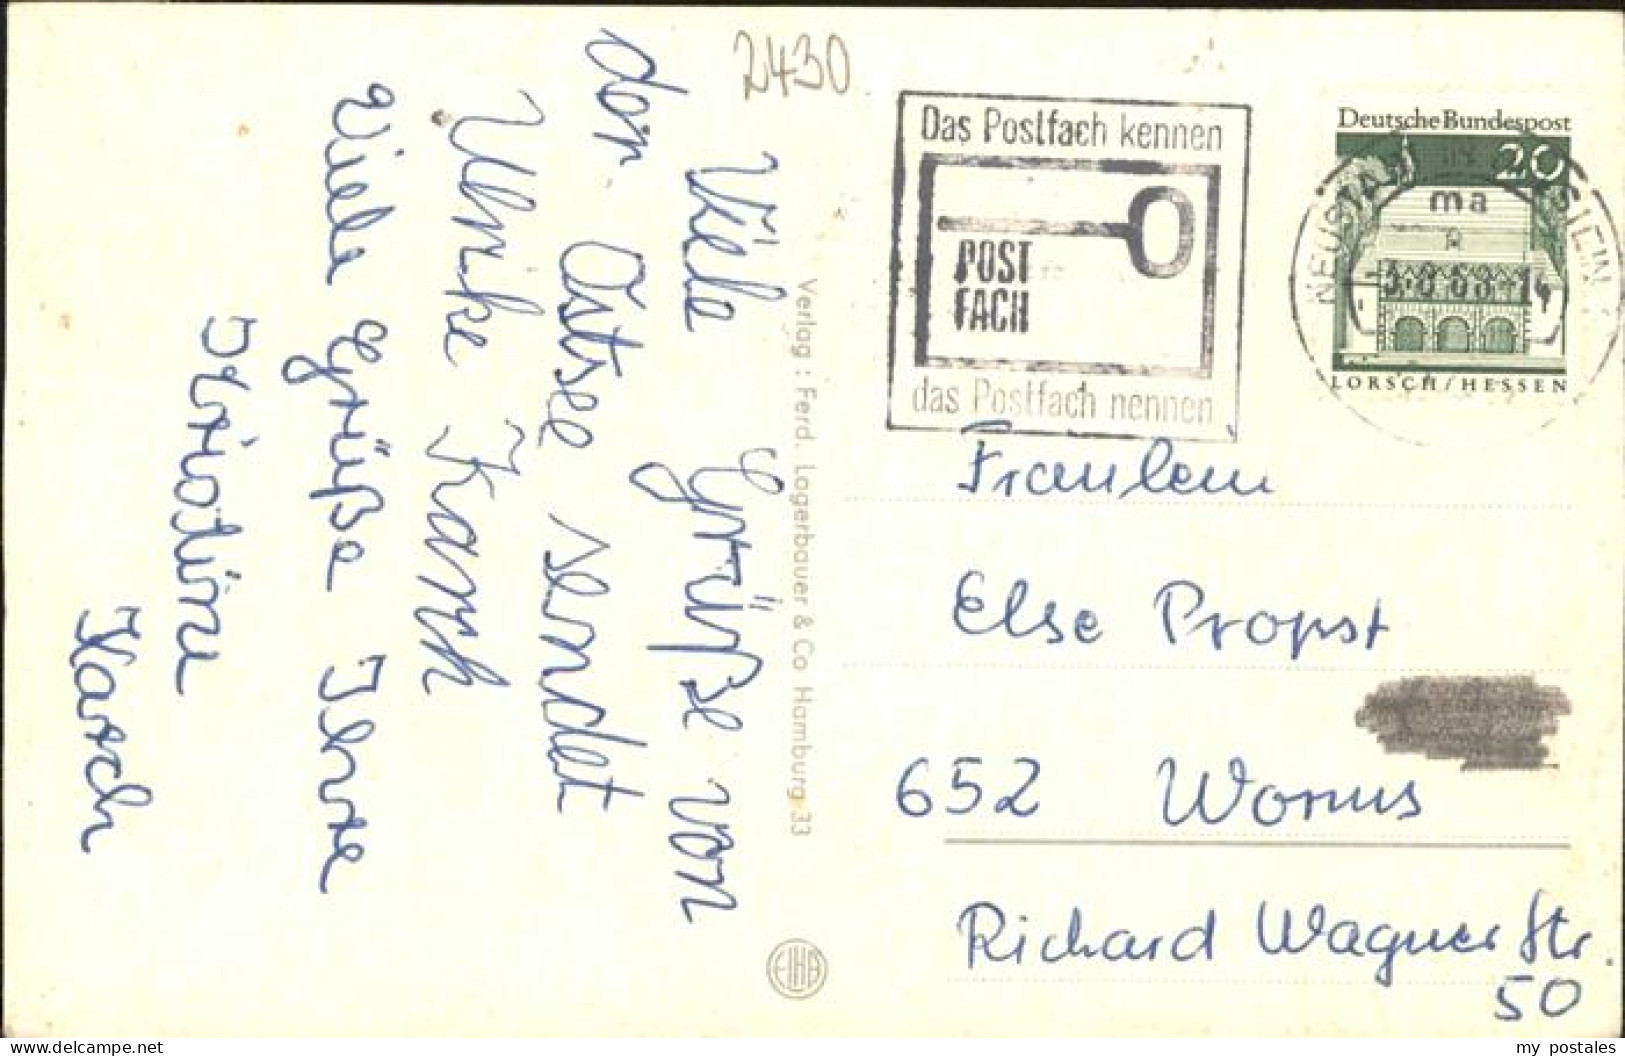 2430
Viele Grüße von
der Ostsee sendet
Ulrike Karch
Viele Grüße Ihre
Karch
Verlag : Ferd. Lagerbauer & Co Hamburg 33
Das Postfach kennen
POST
FACH
das Postfach nennen
Deutsche Bundespost
20
ma
LORSCH/HESSEN
Fräulein
Else Propst
652 Worms
Richard Wagner Str.
50
my postales